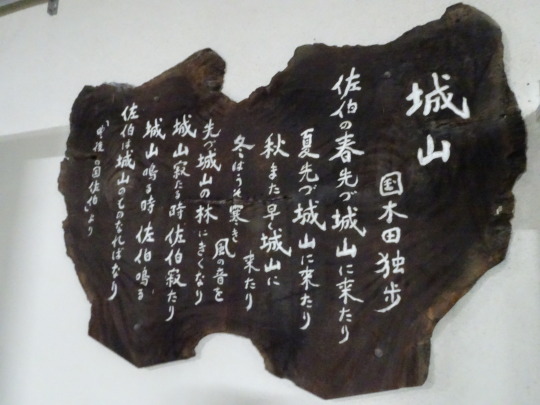 城山
国木田独歩
佐伯の春先づ城山に来たり
夏先づ城山に来たり
秋また早く城山に
来たり
冬はうそ寒き風の音を
先づ城山の林にきくなり
城山寂たる時佐伯寂たり
城山鳴る時佐伯鳴る
佐伯は城山のものなればなり
の国佐伯」より